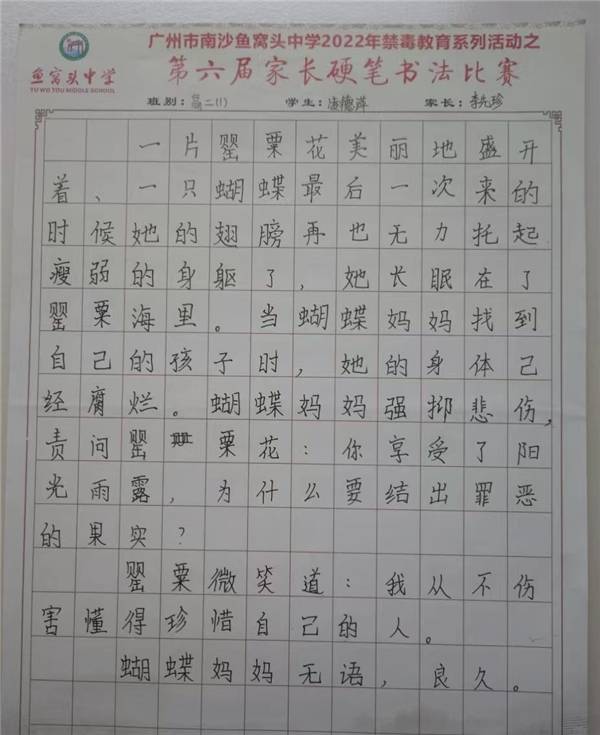 广州市南沙鱼窝头中学2022年禁毒教育系列活动之
鱼窝头中学
YU WO TOU MIDDLE SCHOOL
第六届家长硬笔书法比赛
班别：高二(1) 学生：唐德萍 家长：李先珍
一片罂粟花美丽地盛开
着、一只蝴蝶最后一次来的
时候她的翅膀再也无力托起
瘦弱的身躯了，她长眠在了
罂粟海里。当蝴蝶妈妈找到
自己的孩子时，她的身体己
经腐烂。蝴蝶妈妈强抑悲伤，
责问罂粟花：你享受了阳
光雨露，为什么要结出罪恶
的果实？
罂粟微笑道：我从不伤
害懂得珍惜自己的人。
蝴蝶妈妈无语，良久。